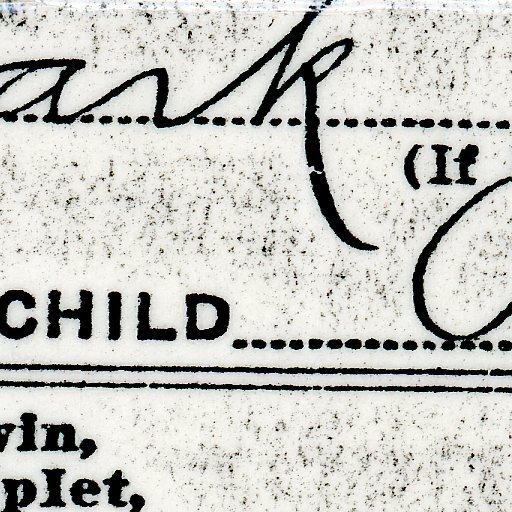 ark
(If
CHILD
win,
plet,